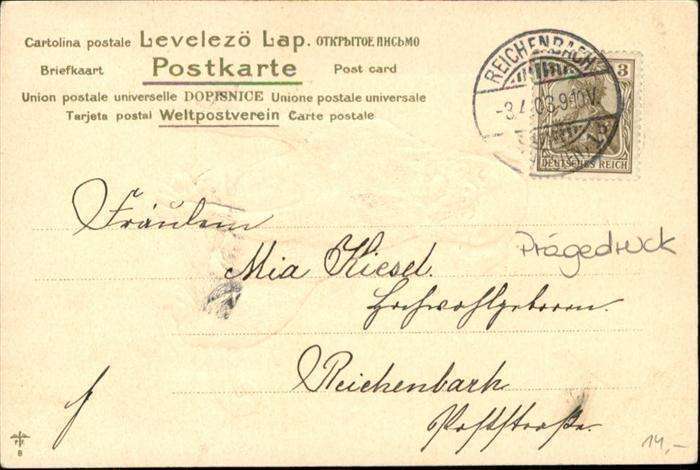 Cartolina postale Levelezö Lap. ОТКРЫТОЕ ПИСЬМО
Briefkaart Postkarte Post card
Union postale universelle DOPISNICE Unione postale universale
Tarjeta postal Weltpostverein Carte postale
REICHENBACH
3
DEUTSCHES REICH
Fräulein
Mia Kiesel.
Hochwohlgeboren.
Prägedruck
Reichenbach
Poststraße.
8
14,-